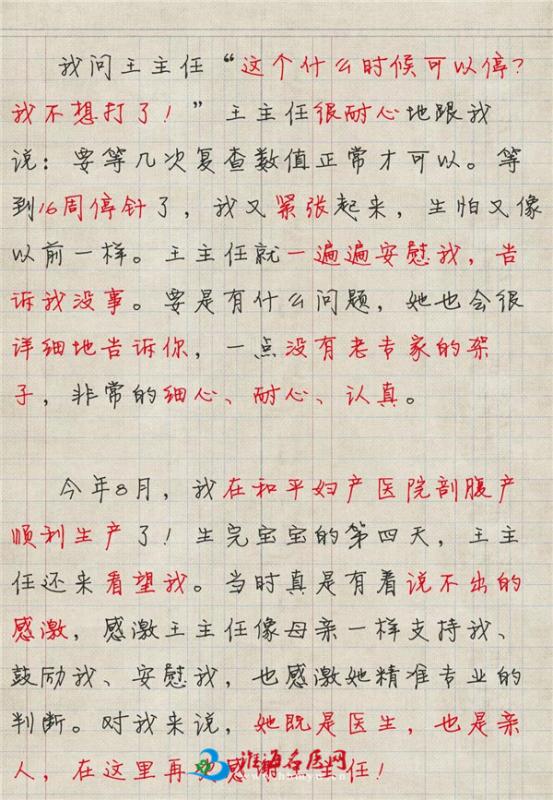 我问王主任“这个什么时候可以停?
我不想打了!”王主任很耐心地跟我
说:要等几次复查数值正常才可以。等
到16周停针了,我又紧张起来,生怕又像
以前一样。王主任就一遍遍安慰我,告
诉我没事。要是有什么问题,她也会很
详细地告诉你,一点没有老专家的架
子,非常的细心、耐心、认真。
今年8月,我在和平妇产医院剖腹产
顺利生产了!生完宝宝的第四天,王主
任还来看望我。当时真是有着说不出的
感激,感激王主任像母亲一样支持我、
鼓励我、安慰我,也感激她精准专业的
判断。对我来说,她既是医生,也是亲
人,在这里再 感 主任!
淮海名医网